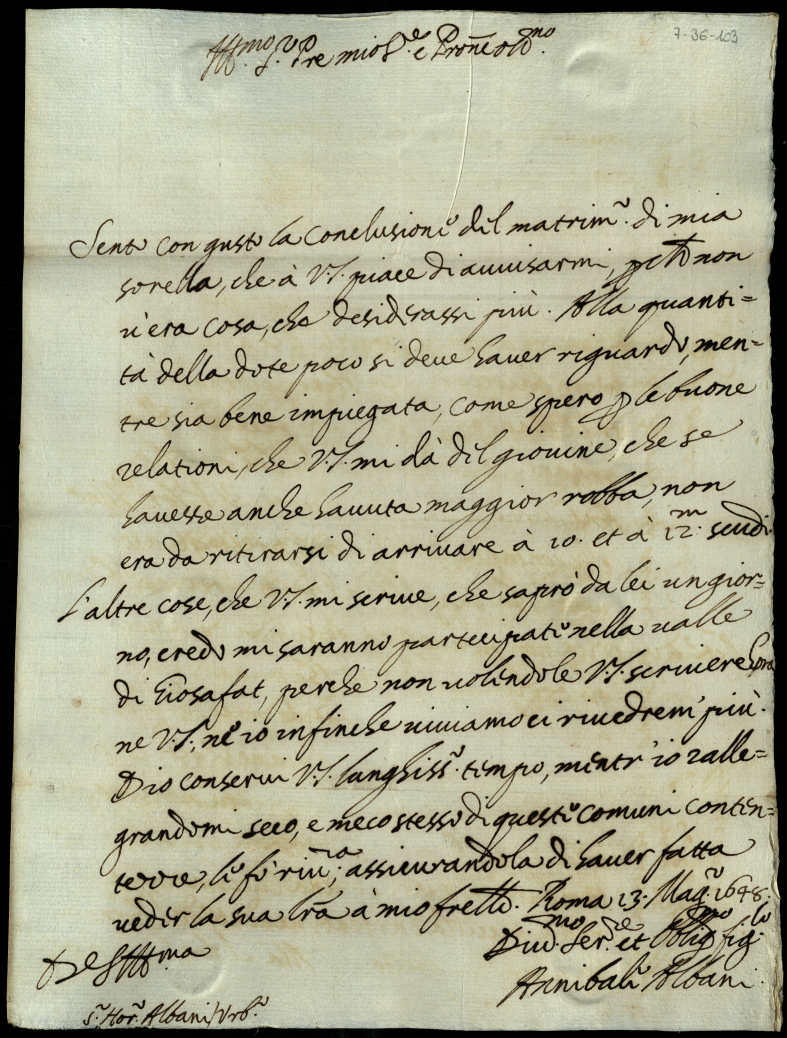 7-36-103
Ill.mo S.r P.re mio Sig.re e Pron Col.mo
Sento con gusto la conclusione del matrim.o di mia
sorella, che à V.S. piace di avvisarmi, perche non
v'era cosa, che desiderassi più. Alla quanti=
tà della dote poco si deve haver riguardo, men=
tre sia bene impiegata, come spero p le buone
relationi, che V.S. mi dà del giovine, che se
havesse anche havuta maggior robba, non
era da ritirarsi di arrivare à 10. et à 12.m scudi
L'altre cose, che V.S. mi scrive, che saprò da lei un gior=
no, credo mi saranno participate nella valle
di Giosafat, perche non volendole V.S. scrivere hora
ne V.S., ne io infinche viviamo ci rivedrem' più.
Dio conservi V.S. longhiss.o tempo, mentr'io ralle=
grandomi seco, e meco stesso di queste comuni conten=
tezze, le fò riv.za, assicurandola di haver fatta
veder la sua lra à mio frello. Roma 13. Mag.o 1648.
Di V.S. Ill.ma
Div.mo Ser.re et Oblig.mo fig.lo
Annibale Albani
S.r Hor.o Albani / Urb.o